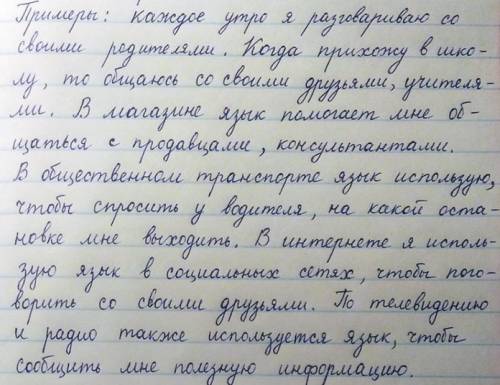 Примеры: каждое утро я разговариваю со
своими родителями. Когда прихожу в шко-
лу, то общаюсь со своими друзьями, учителя-
ми. В магазине язык помогает мне об-
щаться с продавцами, консультантами.
В общественном транспорте язык использую,
чтобы спросить у водителя, на какой оста-
новке мне выходить. В интернете я исполь-
зую язык в социальных сетях, чтобы пого-
ворить со своими друзьями. По телевидению
и радио также используется язык, чтобы
сообщить мне полезную информацию.